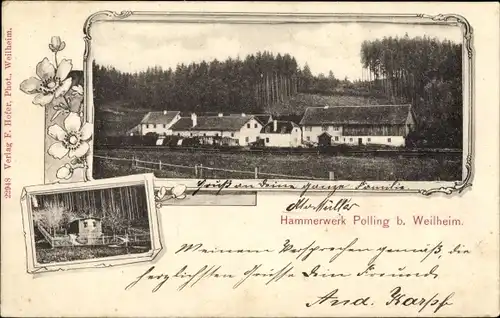 22948 Verlag E. Hofer, Phot., Weilheim.
Gruß an deine ganze Familie
Hammerwerk Polling b. Weilheim.
Meinem Versprechen gemäß, die
herzlichsten Grüße Dein Freund
And. Karpf